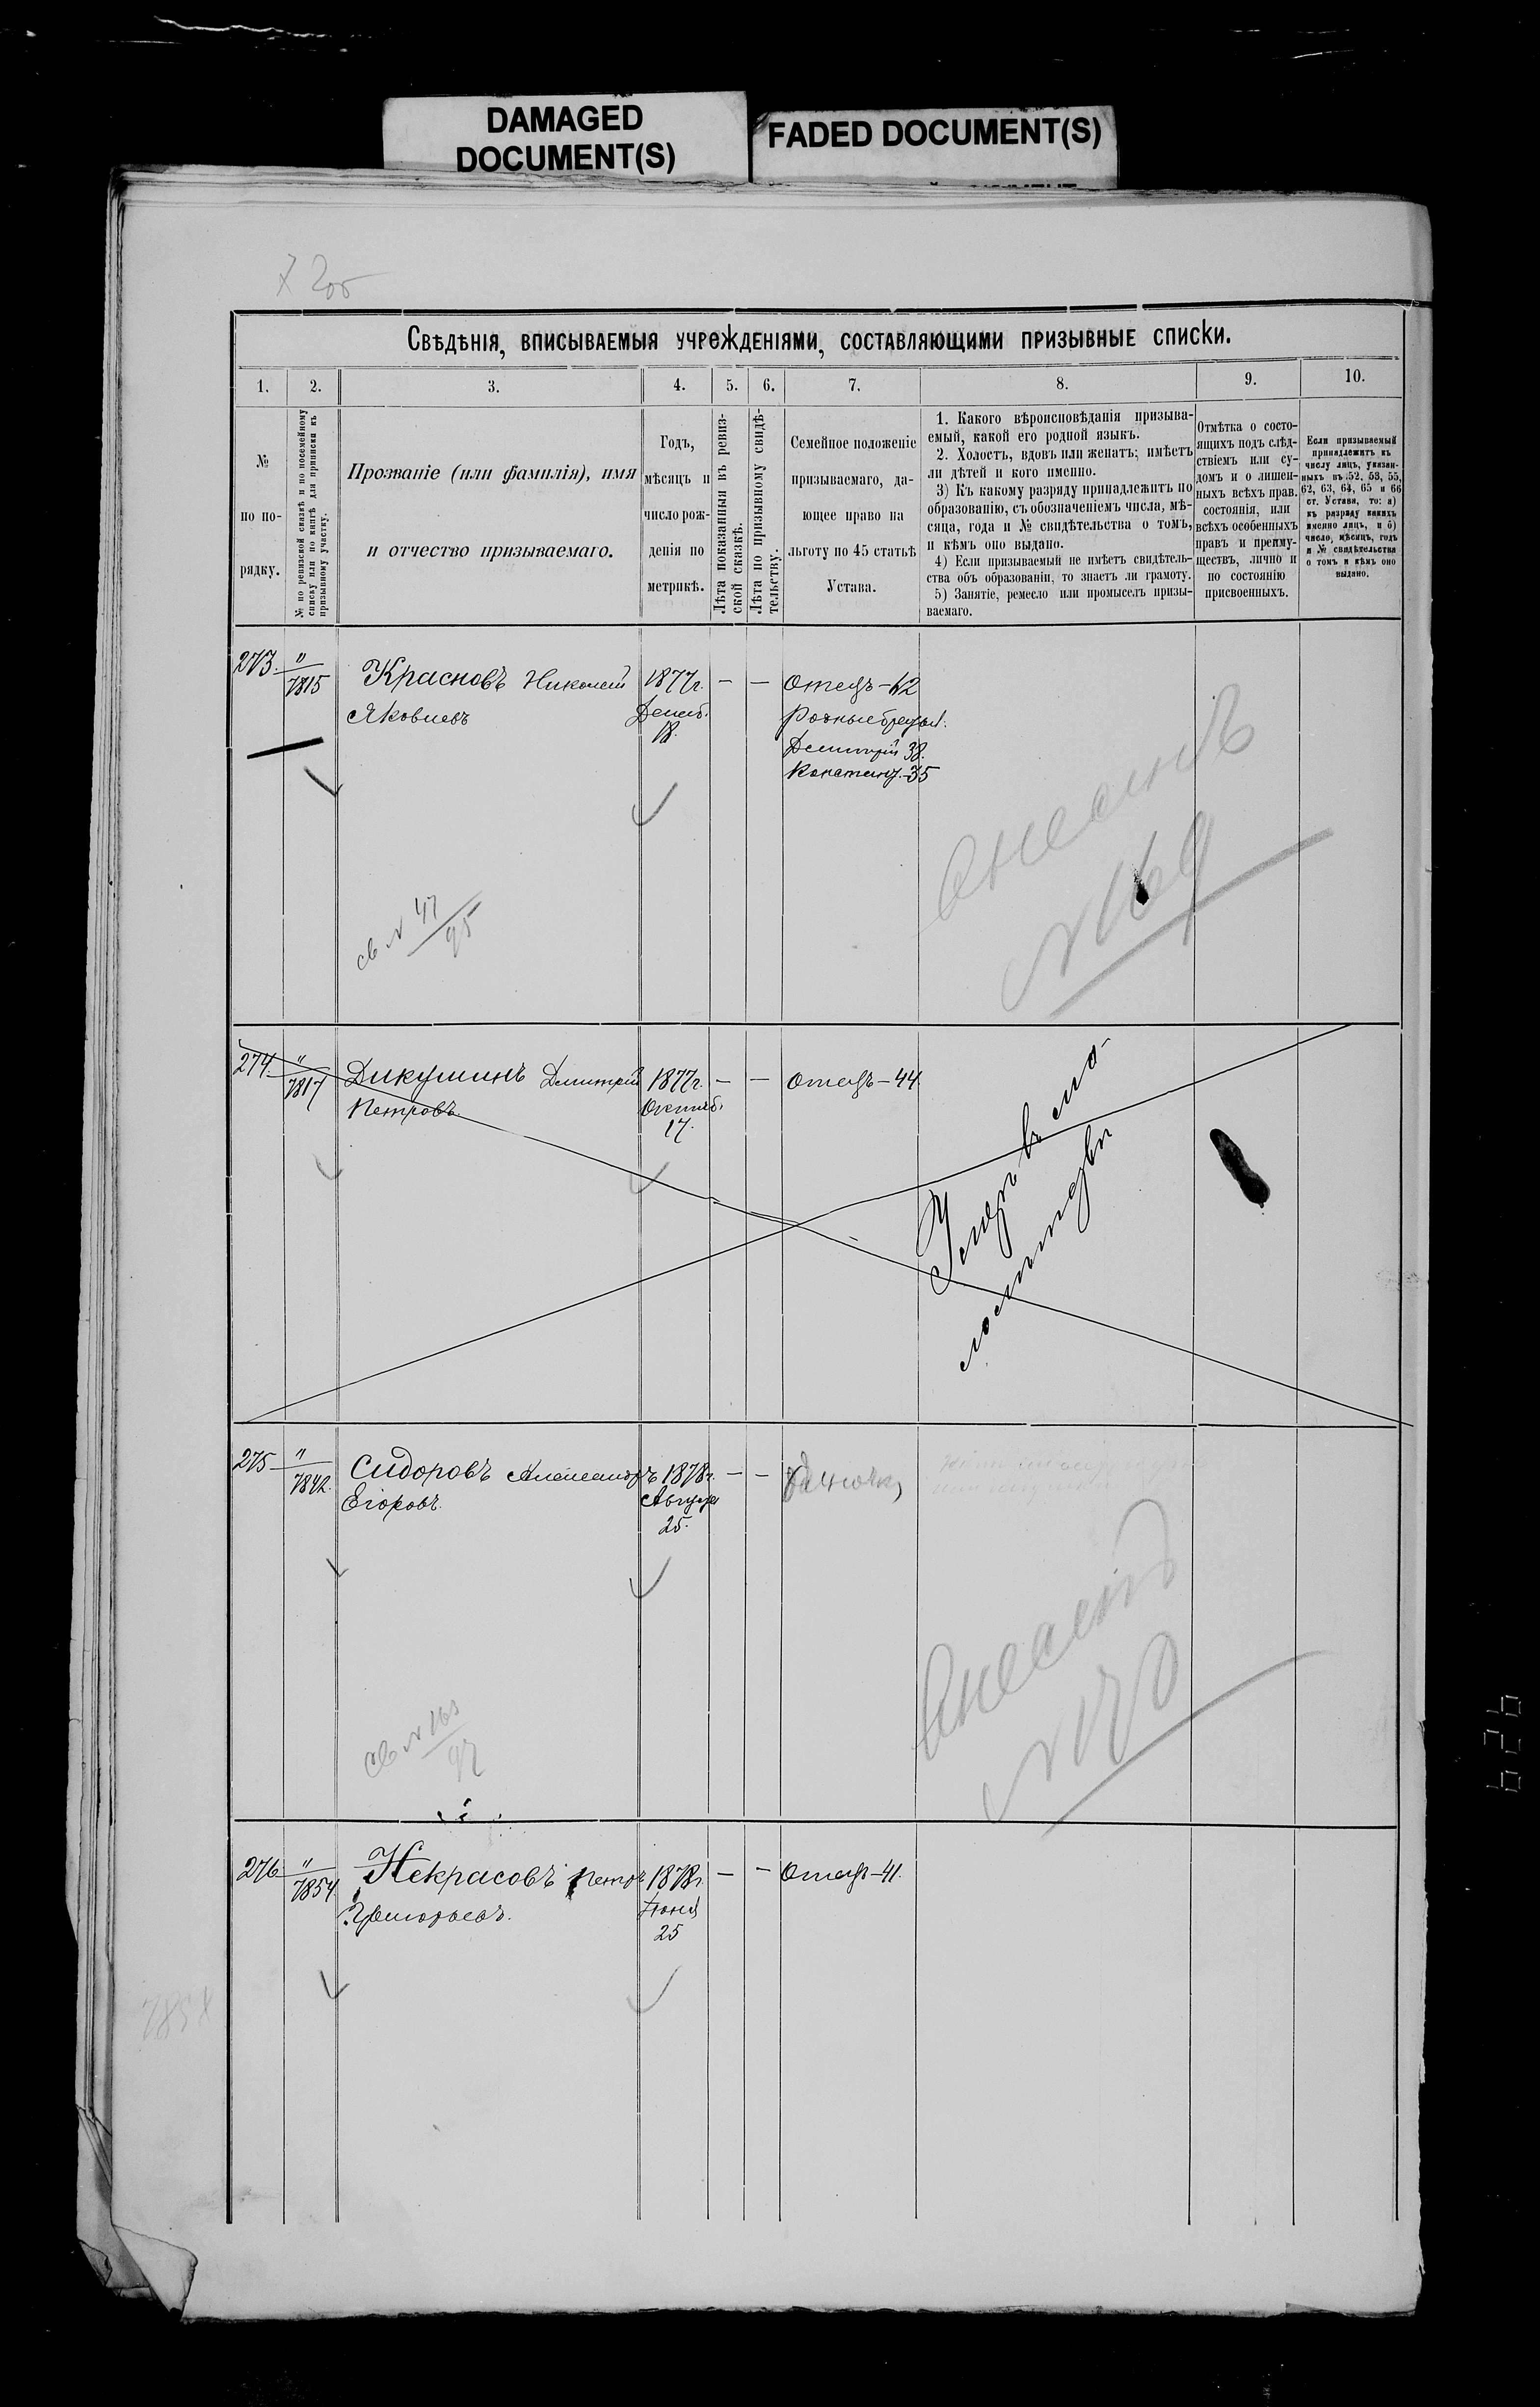 DAMAGED
DOCUMENT(S)
FADED DOCUMENT(S)
Свѣдѣнія, вписываемыя учрежденіями, составляющими призывные списки.
1.
2.
3.
4.
5.
6.
7.
8.
9.
10.
№
по по-
рядку.
№ по ревизской сказкѣ и по посемейному
списку или по книгѣ для приписки къ
призывному участку.
Прозваніе (или фамилія), имя
и отчество призываемаго.
Годъ,
мѣсяцъ и
число рож-
денія по
метрикѣ.
Лѣта показанныя въ ревиз-
ской сказкѣ.
Лѣта по призывному свидѣ-
тельству.
Семейное положеніе
призываемаго, да-
ющее право на
льготу по 45 статьѣ
Устава.
1. Какого вѣроисповѣданія призыва-
емый, какой его родной языкъ.
2. Холостъ, вдовъ или женатъ; имѣетъ
ли дѣтей и кого именно.
3) Къ какому разряду принадлежитъ по
образованію, съ обозначеніемъ числа, мѣ-
сяца, года и № свидѣтельства о томъ,
и кѣмъ оно выдано.
4) Если призываемый не имѣетъ свидѣтель-
ства объ образованіи, то знаетъ ли грамоту.
5) Занятіе, ремесло или промыселъ призы-
ваемаго.
Отмѣтка о состо-
ящихъ подъ слѣд-
ствіемъ или су-
домъ и о лишен-
ныхъ всѣхъ прав.
состоянія, или
всѣхъ особенныхъ
правъ и преиму-
ществъ, лично и
по состоянію
присвоенныхъ.
Если призываемый
принадлежитъ къ
числу лицъ, указан-
ныхъ въ 52, 53, 55,
62, 63, 64, 65 и 66
ст. Устава, то: а)
къ разряду какихъ
именно лицъ, и б)
число, мѣсяцъ, годъ
и № свидѣтельства
о томъ и кѣмъ оно
выдано.
273. " 7815 Красновъ Николай 1877г. — — Отецъ-62
Яковлевъ Декаб. Родные братья:
18. Дмитрій 38.
Констант.-35
внесенъ
№ 169
св № 47/95
274. " 7817 Дикушинъ Дмитрій 1877г. — — Отецъ-44.
Петровъ Октяб.
17.
Умеръ въ мла-
275 " 7842. Сидоровъ Александръ 1878г. — —
Егоровъ. Августа
25.
Внесенъ
№ 170
св № 163/97
276 " 7854 Некрасовъ Петръ 1878г. — — Отецъ-41.
Григорьевъ. Іюня
25
7858